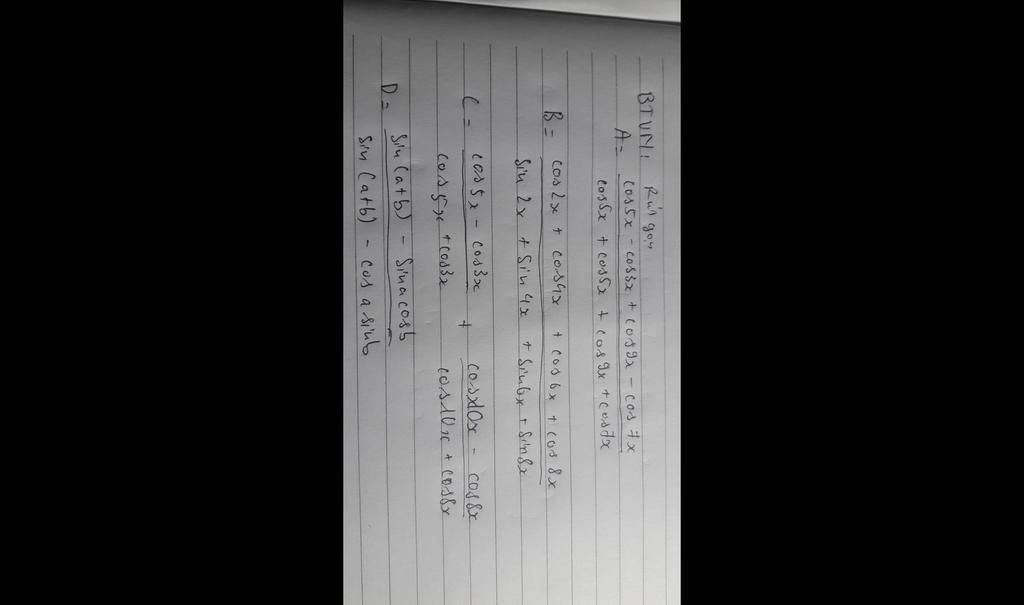 BTVN: Rút gọn
A = cos5x - cos3x + cos9x - cos7x
cos5x + cos5x + cos9x + cos7x
B = cos2x + cos4x + cos6x + cos8x
sin2x + sin4x + sin6x + sin8x
C = cos5x - cos3x + cos10x - cos8x
cos5x + cos3x cos10x + cos8x
D = sin(a+b) - sinacosb
sin(a+b) - cosasinb